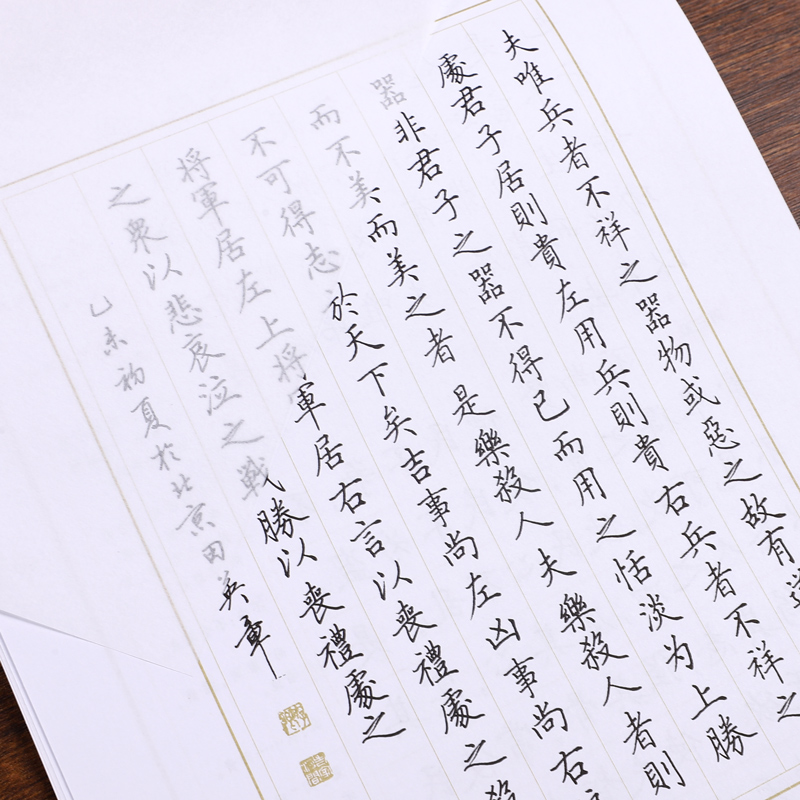 夫唯兵者不祥之器物或惡之故有
處君子居則貴左用兵則貴右兵者不祥之
器非君子之器不得已而用之恬淡为上勝
而不美而美之者是樂殺人夫樂殺人者則
不可得志於天下矣吉事尚左凶事尚右
将軍居左上将軍居右言以喪禮處之殺
之衆以悲哀泣之戦勝以喪禮處之
乙未初夏於北京田英章